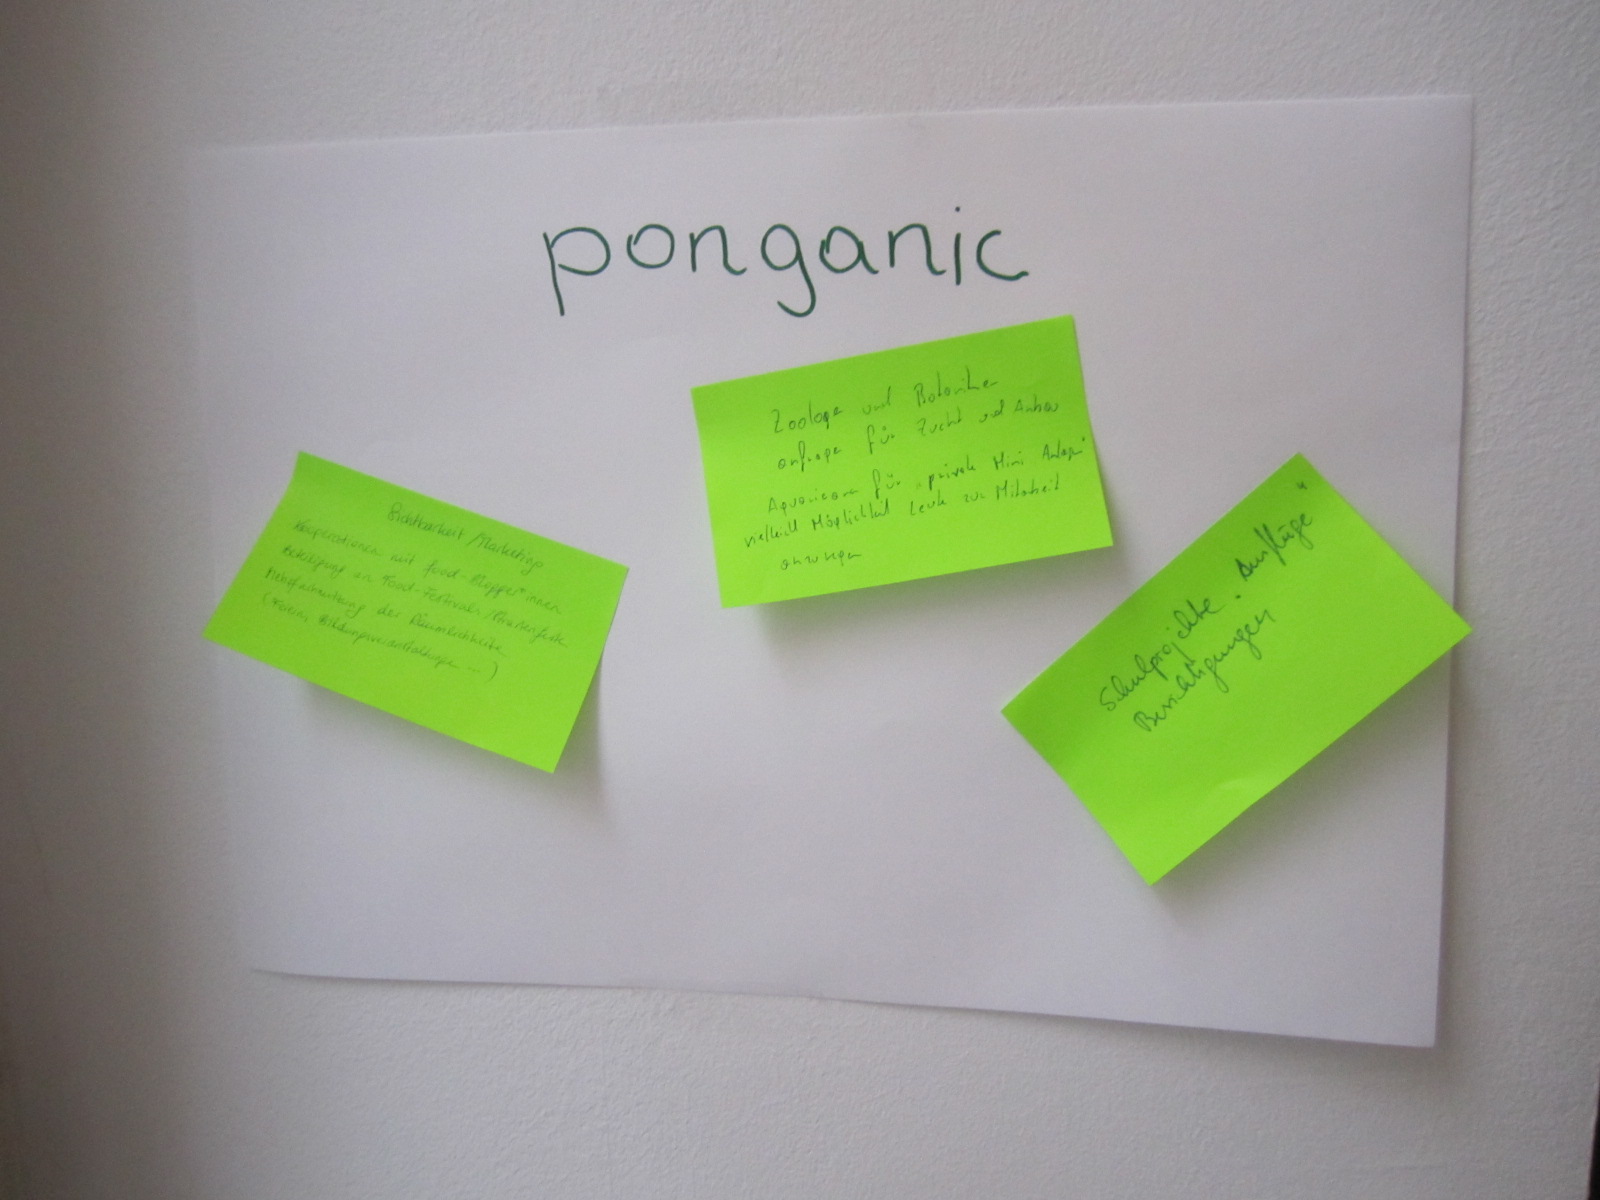 ponganic
Sichtbarkeit / Marketing
Kooperationen mit food-Blogger*innen
Beteiligung an Food-Festivals / Straßenfeste
Mehrfachnutzung der Räumlichkeiten
(Feiern, Bildungsveranstaltungen ...)
Zoologe und Botaniker
anfrage für Zucht und Anbau
für "private Mini Anlagen"
vielleicht Möglichkeit Leute zur Mitarbeit
anzuregen
Schulprojekte "Ausflüge"
Besichtigungen